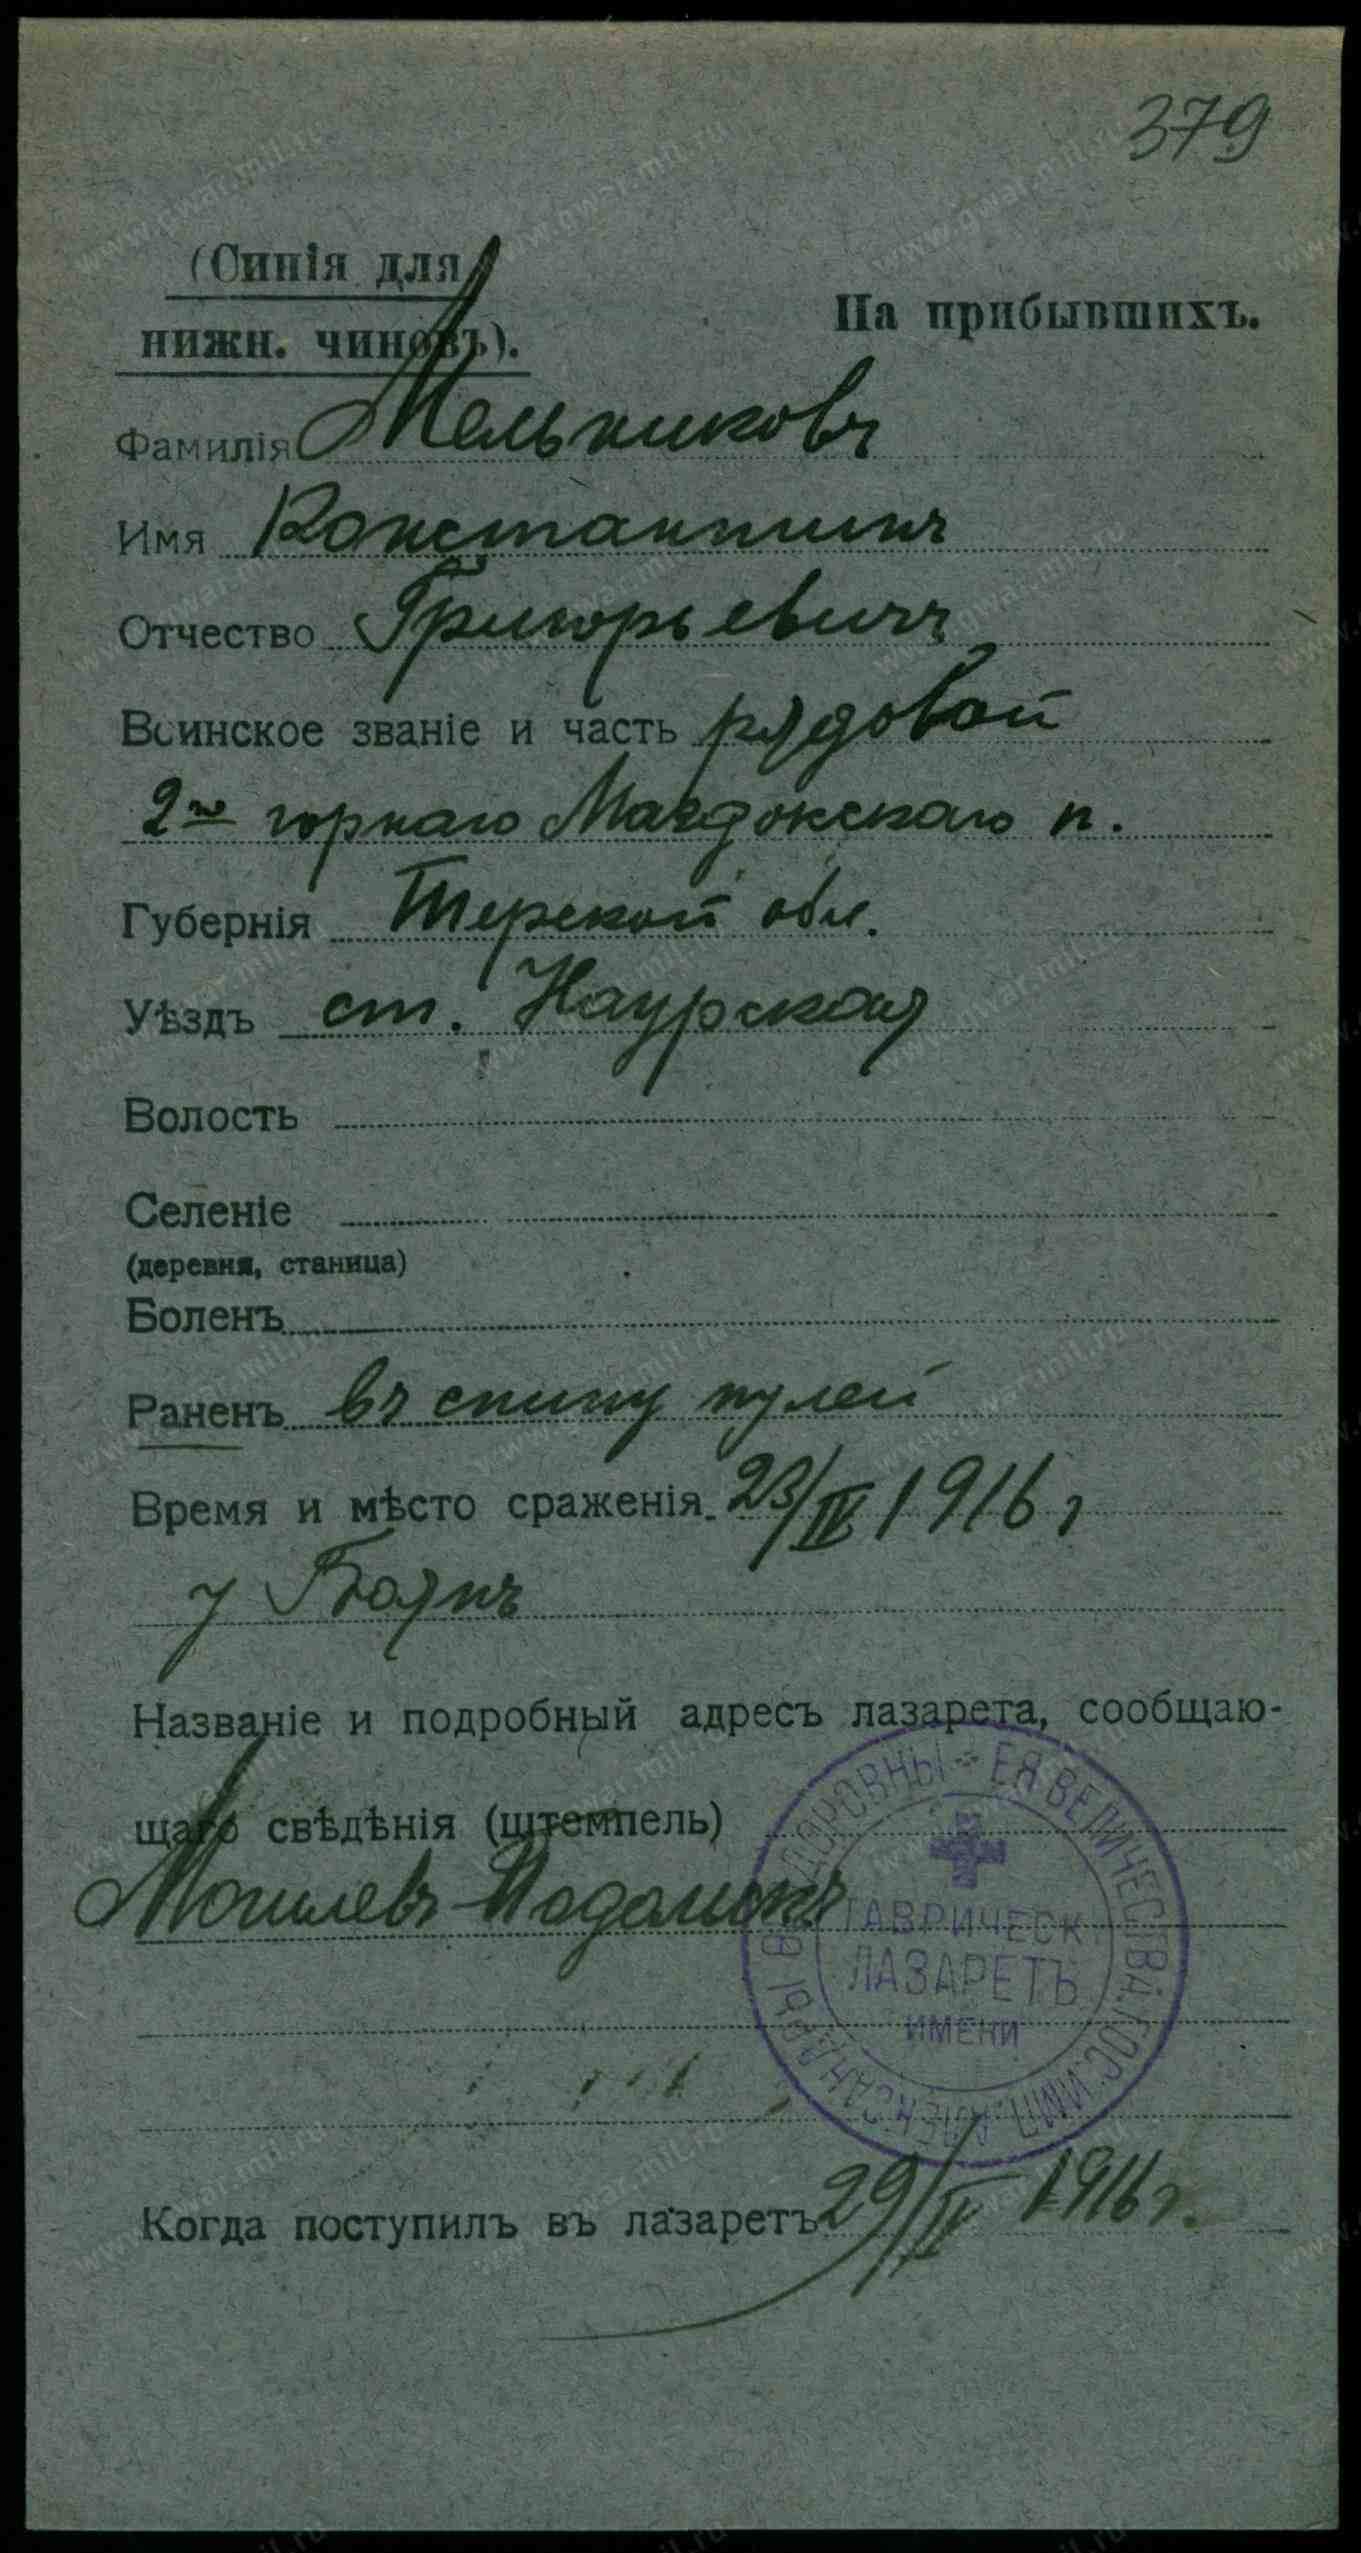 379
(Синія для
нижн. чиновъ).
На прибывшихъ.
Фамилія Мельниковъ
Имя Константинъ
Отчество Григорьевичъ
Воинское званіе и часть рядовой
2го горнаго Магдокскаго п.
Губернія Терской обл.
Уѣздъ ст. Наурская
Волость
Селеніе
(деревня, станица)
Боленъ
Раненъ въ спину пулей
Время и мѣсто сраженія 23/IV 1916 г
у Боянъ
Названіе и подробный адресъ лазарета, сообщаю-
щаго свѣдѣнія (штемпель)
Могилевъ-Подольскъ
ЕЯ ВЕЛИЧЕСТВА ГОС. ИМП. АЛЕКСАНДРЫ ѲЕОДОРОВНЫ
ТАВРИЧЕСК.
ЛАЗАРЕТЪ
ИМЕНИ
Когда поступилъ въ лазаретъ 29/IV 1916 г.
www.gwar.mil.ru